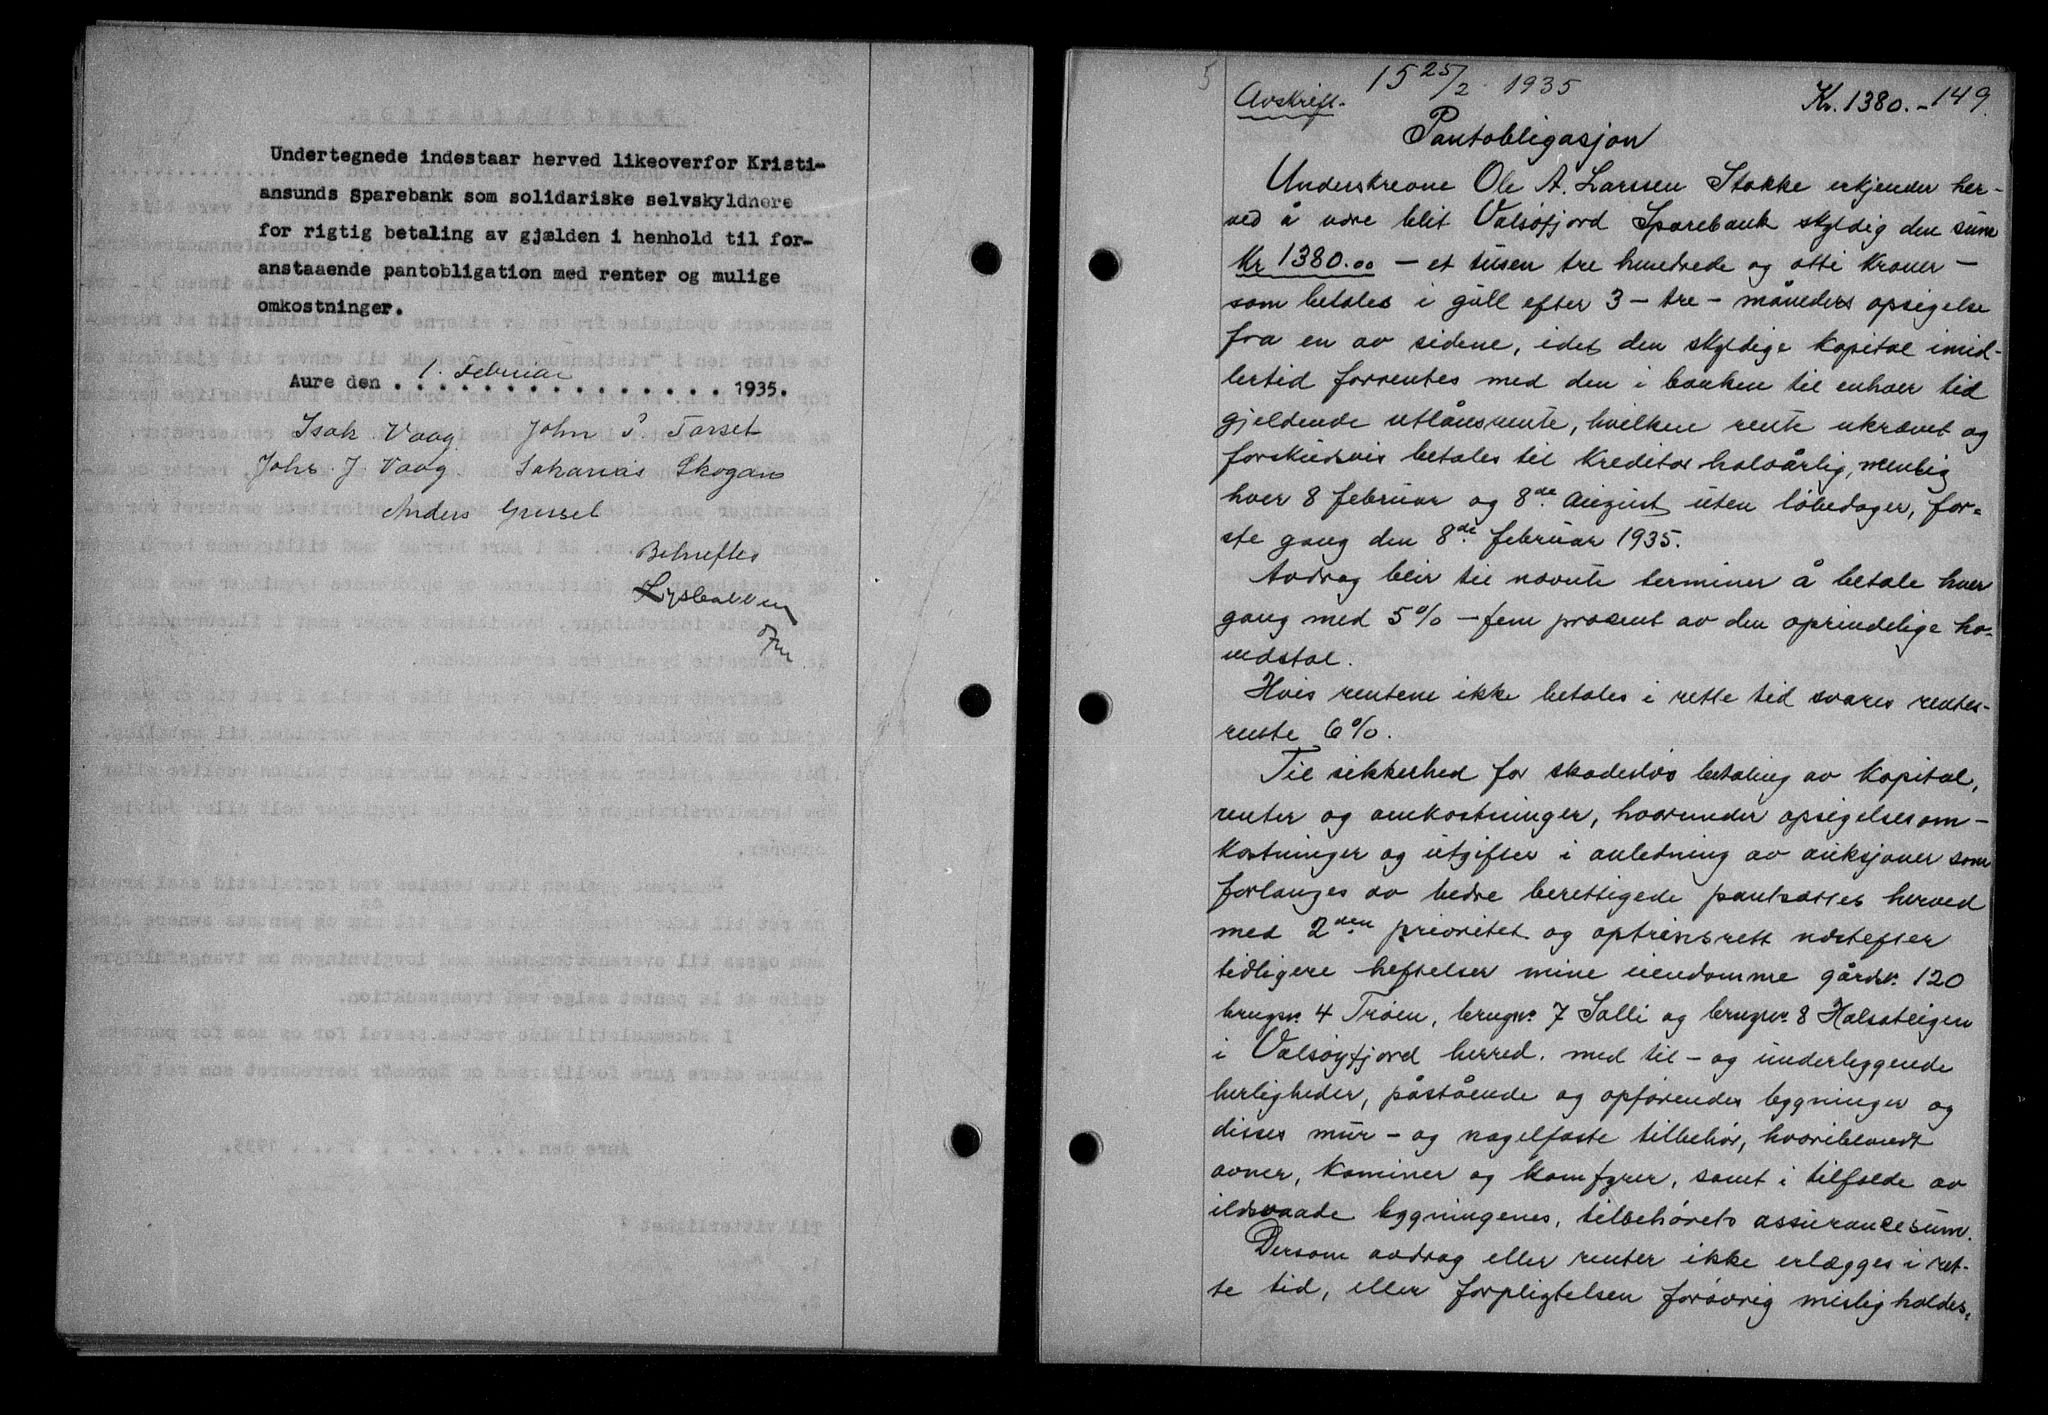 Undertegnede indestaar herved likeoverfor Kristi-
ansunds Sparebank som solidariske selvskyldnere
for rigtig betaling av gjælden i henhold til for-
anstaaende pantobligation med renter og mulige
omkostninger.
Aure den 1. Februar 1935.
Isak Vaag. John P. Torset
John J. Vaag Sakarias Skogan
Anders Grussel
Bekreftes
15 25/2 1935
Avskrift. Kr. 1380.- 149.
Pantobligasjon
Underskrevne Ole A. Larssen Stokke erkjender her-
ved å være blit Valsøfjord Sparebank skyldig den sum
Kr 1380.00 - et tusen tre hundrede og otti kroner -
som betales i gull efter 3 - tre - måneders opsigelse
fra en av sidene, idet den skyldige kapital imid-
lertid forrentes med den i banken til enhver tid
gjeldende utlånsrente, hvilken rente ukrævet og
forskudsvis betales til kreditor halvårlig, nemlig
hver 8 februar og 8de august uten løbedager, før-
ste gang den 8de februar 1935.
Avdrag blir til nævnte terminer å betale hver
gang med 5% - fem prosent av den oprindelige ho-
vedstol.
Hvis rentene ikke betales i rette tid svares rentes-
rente 6%.
Til sikkerhed for skadesløs betaling av kapital,
renter og omkostninger, hvorunder opsigelsesom-
kostninger og utgifter i anledning av auksjoner som
forlanges av bedre berettigede pantsættes herved
med 2den prioritet og optrinsrett næstefter
tidligere heftelser mine eiendomme gårdsnr. 120
brugsnr. 4 Trøen, brugsnr. 7 Solli og brugsnr. 8 Halsateigen
i Valsøyfjord herred. med til - og underliggende
herligheder, påstående og opførendes bygninger og
disses mur - og nagelfaste tilbehør, hvoriblandt
ovner, kaminer og komfyrer, samt i tilfælde av
ildsvaade bygningenes, tilbehørets assurancesum.
Dersom avdrag eller renter ikke erlægges i ret-
te tid, eller forpligtelsen forøvrig misligholdes,